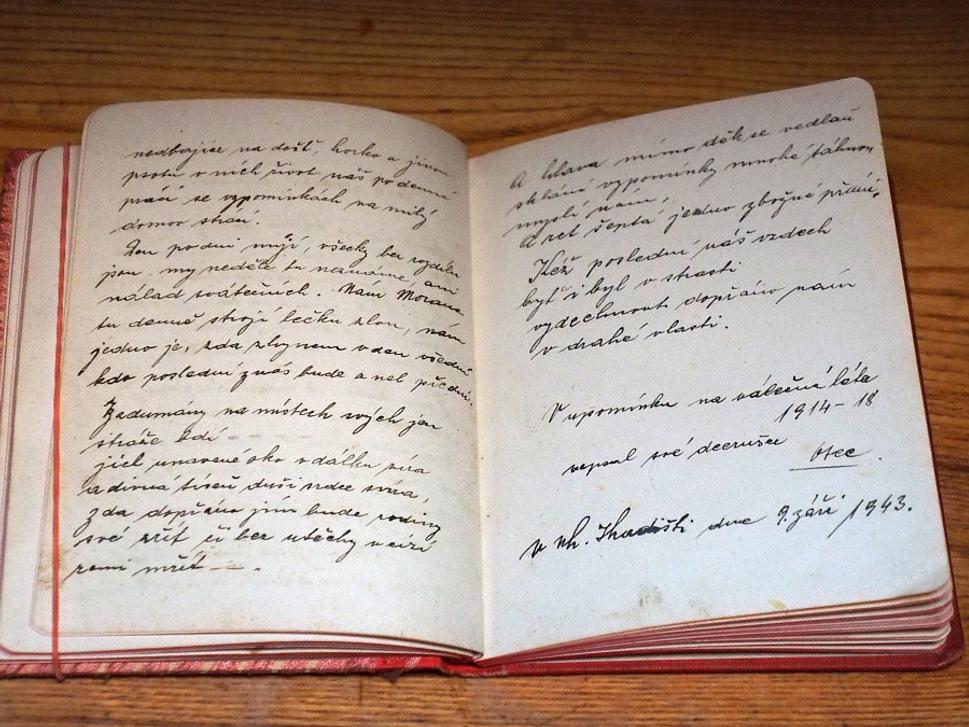 nedbajíce na déšť, horko a jinou
psotu v nich život náš po denní
práci se vzpomínkách na milý
domov stráví.
Den po dni míjí, všecky bez rozdílu
jsou, my neděle tu neznáme, ani
nálad svátečních. Nám Morana
tu denně strojí léčku zlou, nám
jedno je, zda zhynem v den všední
kdo poslední z nás bude a neb přední.
Zadumány na místech svých jsou
stráže kdí —
jich unavené oko v dálku zírá
a divná tíseň duši srdce svírá,
zda dopřáno jim bude rodiny
své zřít či bez útěchy v cizí
zemi mřít — .
A hlava mimo děk se vedlaň
sklání vzpomínky mnohé táhnou
myslí nám,
A ret šeptá jedno zbožné přání,
Kéž poslední náš vzdech
byť i byl v strasti
vydechnouti dopřáno nám
v drahé vlasti.
V upomínku na válečná léta
1914-18
vepsal své dcerušce
Otec.
V Uh. Hradišti dne 9. září 1943.